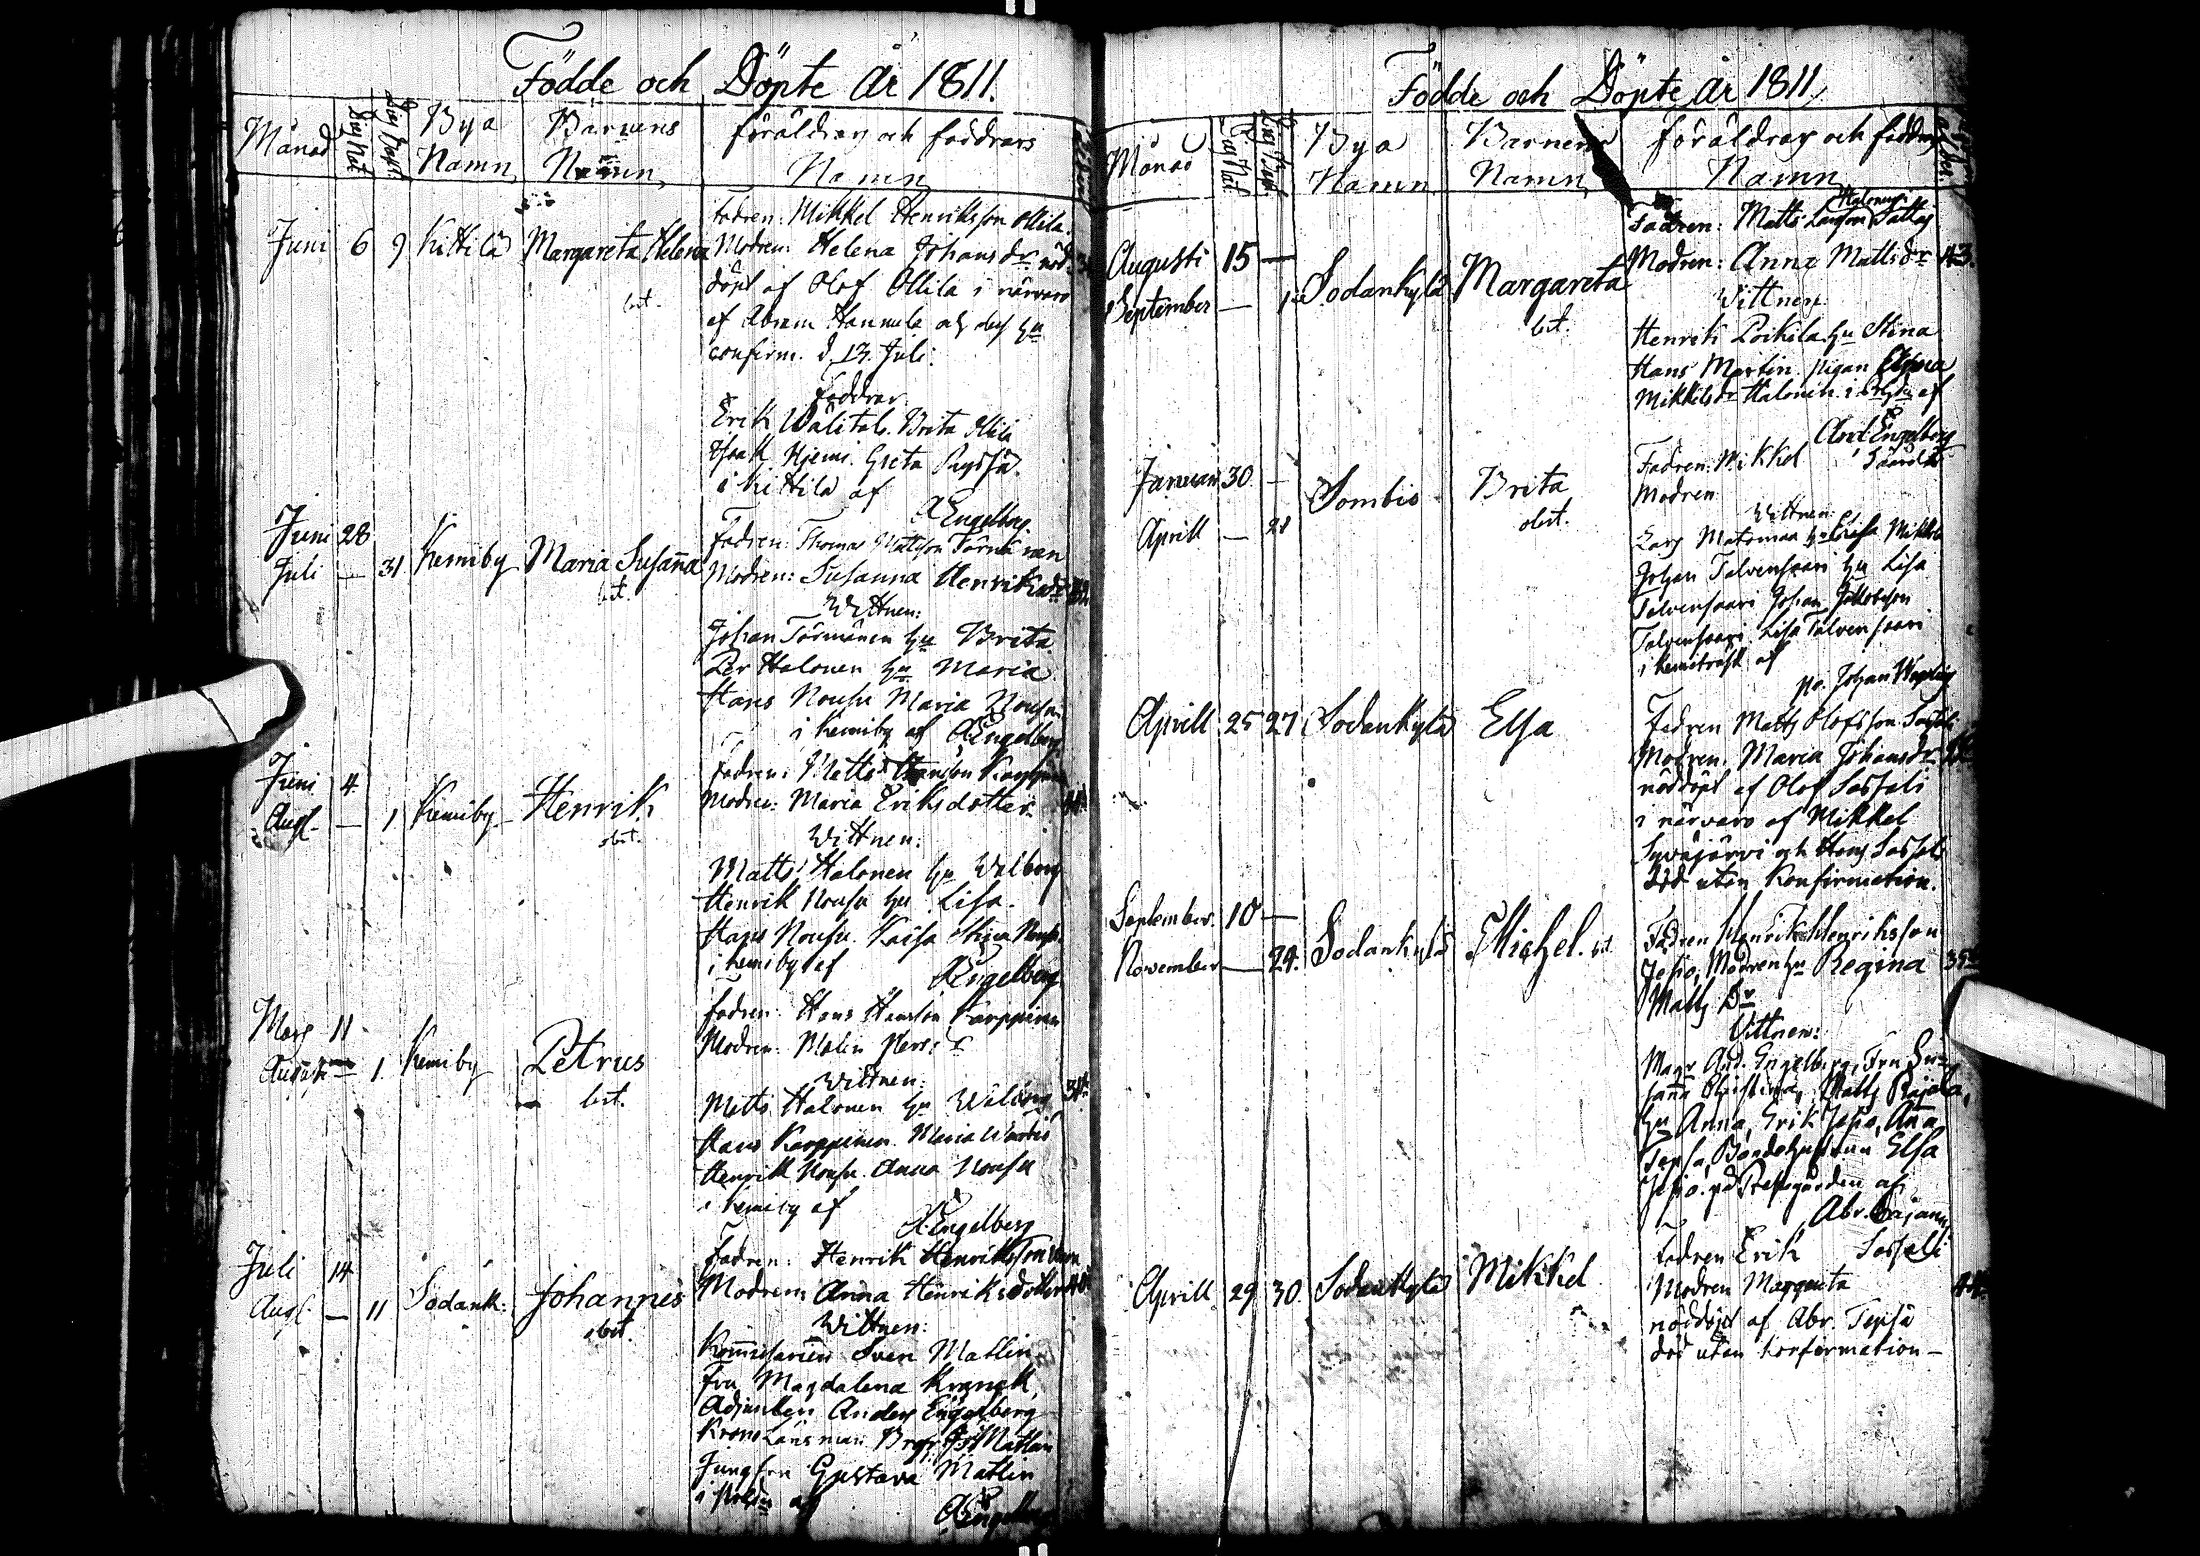 Födde och Döpte År 1811.
Månad
Bya Namn
Barnens Namn
föräldrar och faddrars Namn
Juni 6 9 Kittilä Margareta Helena
obit.
Fadren: Mikkel Henriksson Ollila.
Modren: Helena Johansdr nöd-
döpt af Olof Ollila i närvaro
af Abram Hannula och dess hu
confirm. d. 13. Juli.
Faddrar
Erik Wälitalo. Brita Ollila
Isaak Niemi. Greta
i Kittilä af
A Engelberg.
Juni 28
Juli — 31 Kemiby Maria Susanna
obit.
Fadren: Thomas Mattsson Törmänen
Modren: Susanna Henriksdr
Wittnen:
Johan Törmänen hu Brita
Per Halonen hu Maria
Hans Nousu Maria Nousu
i Kemiby af AEngelberg
Juni 4
Aug. — 1 Kemiby Henrik
obit.
Fadren: Matts Hansson Karppinen
Modren: Maria Eriksdotter
Wittnen:
Matts Halonen hu Walborg
Henrik Nousu hu Lisa.
Hans Nousu. Kaisa Stina Nousu
i Kemiby af
AEngelberg
Mars 11
Augusti — 1 Kemiby Petrus
obit.
Fadren: Hans Hansson Karppinen
Modren: Malin Persdr
Wittnen:
Matts Halonen hu Walborg
Hans Karppinen. Maria
Henrik Nousu. Anna Nousu
i Kemiby af
A.Engelberg
Juli 14
Aug. — 11 Sodank: Johannes
obit.
Fadren: Henrik Henriksson
Modren: Anna Henriksdotter
Wittnen:
Kommissarien Sven Matlin
Fru Magdalena Kranck,
Adjunkten Anders Engelberg
Krono Länsman Matlin
Jungfru Gustava Matlin
af
AEngelberg
Födde och Döpte År 1811.
Månad
Bya Namn
Barnens Namn
föräldrar och faddrars Namn
Augusti 15 —
September — 1 Sodankylä Margareta
obit.
Halonen
Fadren: Matts Larsson
Modren: Anna Mattsdr 43.
Wittnen
Henrik Poikela hu Stina
Hans Martin. pigan
Mikkelsdr Halonen i af
And: Engelberg
Januari 30 —
Aprill — 21 Sombio Brita
obit.
Fadren: Mikkel
Modren
Wittnen:
Lars Matomaa hu
Johan Talvensaari hu Lisa
Talvensaari Johan Jakobsson
Talvensaari Lisa Talvensaari
i Kemiträsk af
Johan
Aprill 25 27 Sodankylä Elsa
Fadren Matts Olofsson Sassali
Modren. Maria Johansdr
nöddöpt af Olof Sassali
i närvaro af Mikkel
Syväjärvi och Hans Sassali
död utan Konfirmation.
September 10 —
November — 24. Sodankylä Michel. obit
Fadren Henrik Henriksson
Jesiö, Modren hu Regina 35
Matts Dr
Vittnen:
Magr And. Engelberg, Fru Su-
sanna Christina, Matts Rajala,
hu Anna, Erik Jesiö, Anna
Tepsa, Bondehustrun Elsa
Jesiö. på Prestgården af
Abr. Cajanus
Aprill 29 30 Sodankylä Mikkel
Fadren Erik Sassali
Modren Margareta
nöddöpt af Abr. Tepsa
död utan konfirmation —